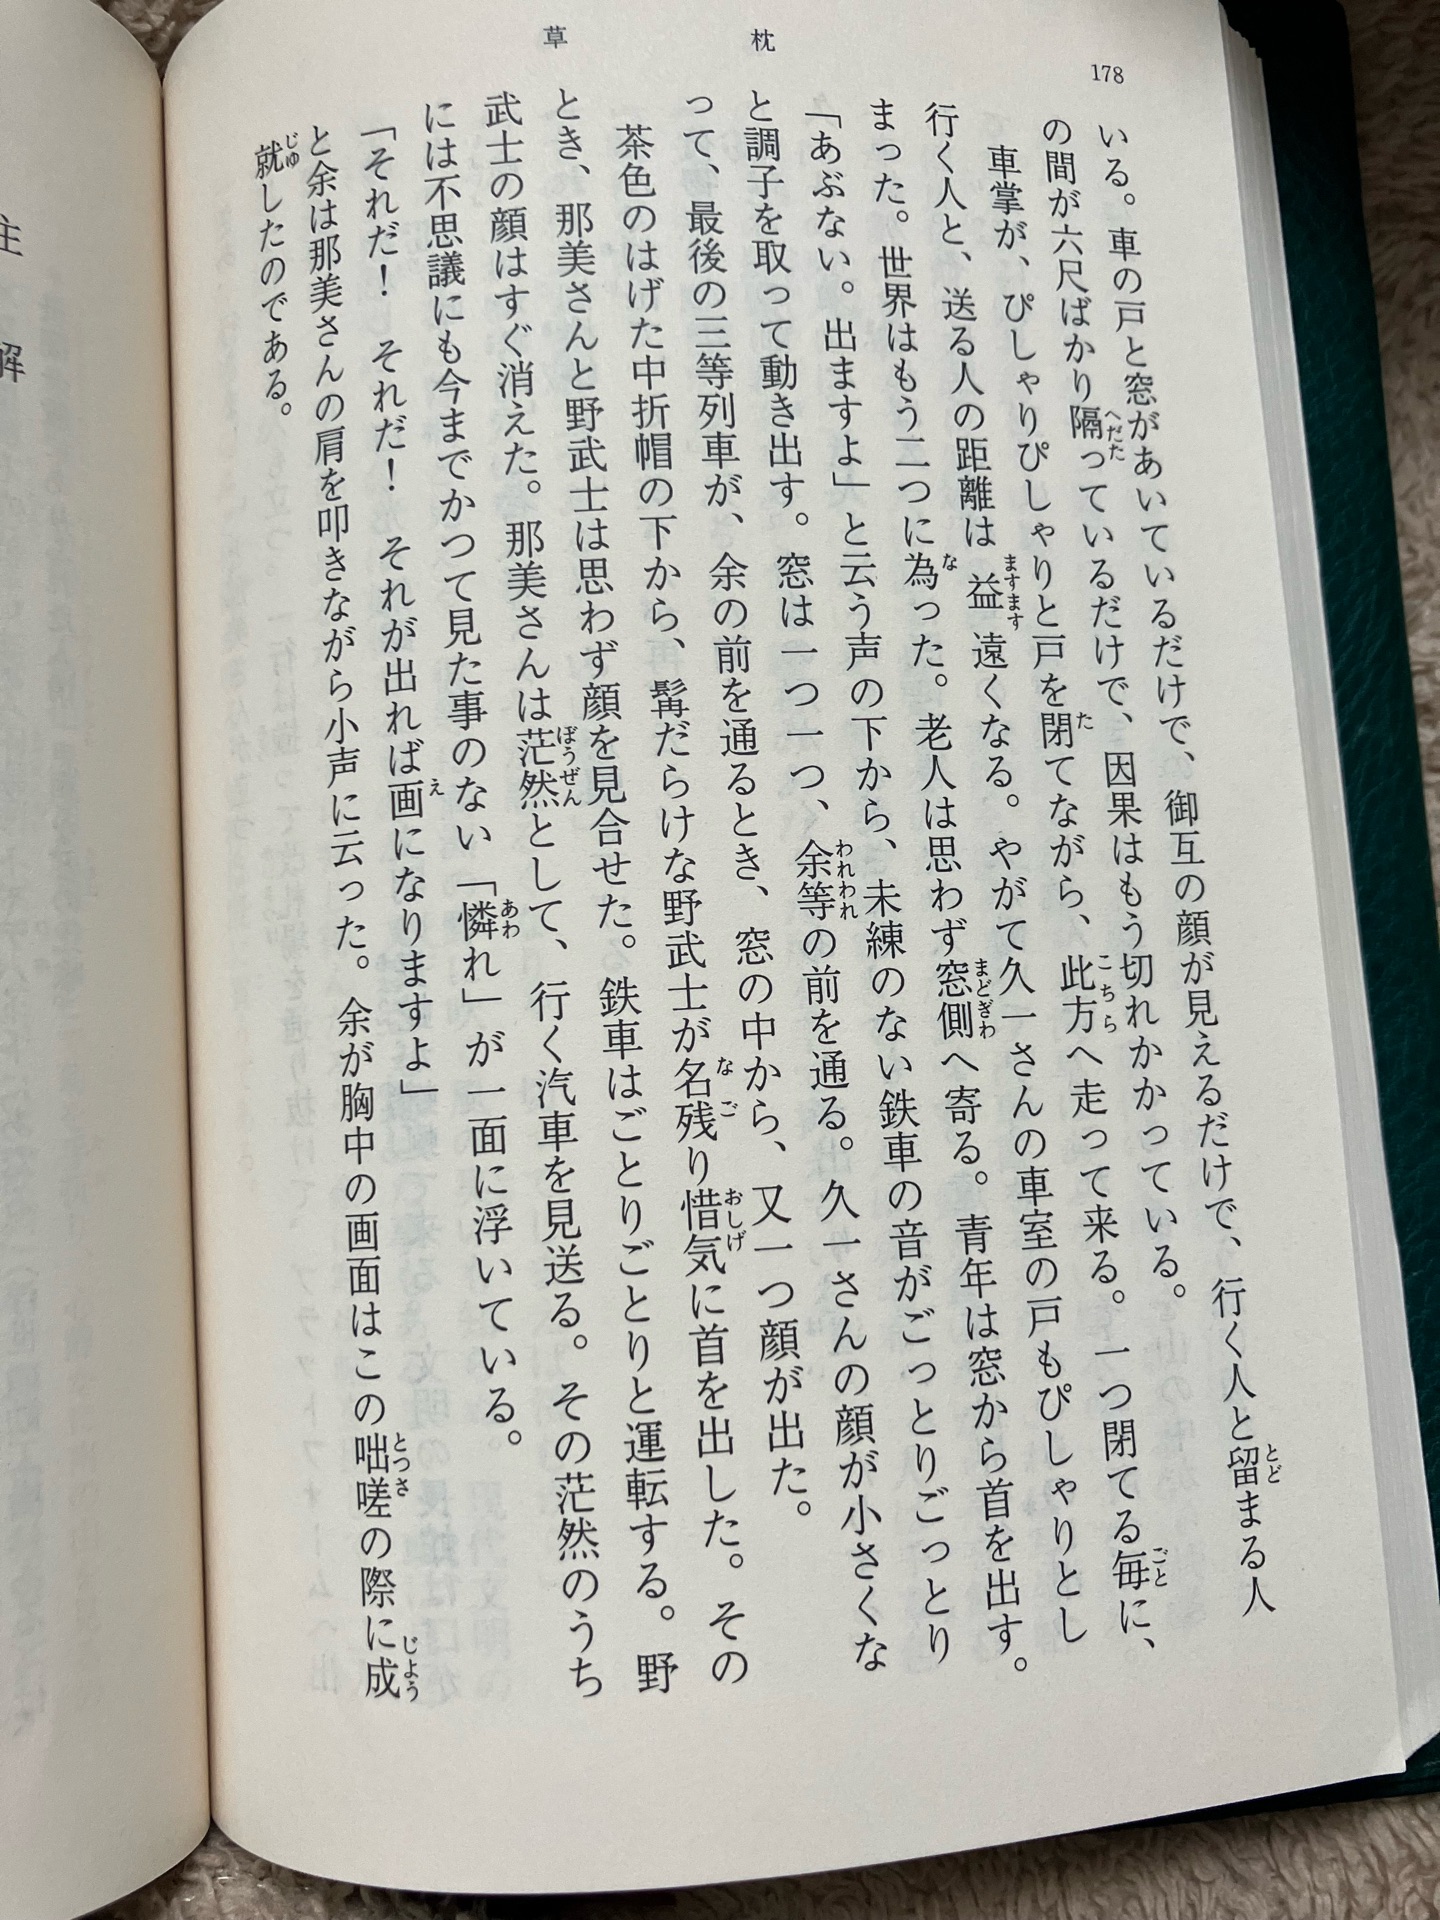 草枕
178
いる。車の戸と窓があいているだけで、御互の顔が見えるだけで、行く人と留まる人
の間が六尺ばかり隔っているだけで、因果はもう切れかかっている。
車掌が、ぴしゃりぴしゃりと戸を閉てながら、此方へ走って来る。一つ閉てる毎に、
行く人と、送る人の距離は益遠くなる。やがて久一さんの車室の戸もぴしゃりとし
まった。世界はもう二つに為った。老人は思わず窓側へ寄る。青年は窓から首を出す。
「あぶない。出ますよ」と云う声の下から、未練のない鉄車の音がごっとりごっとり
と調子を取って動き出す。窓は一つ一つ、余等の前を通る。久一さんの顔が小さくな
って、最後の三等列車が、余の前を通るとき、窓の中から、又一つ顔が出た。
茶色のはげた中折帽の下から、髯だらけな野武士が名残り惜気に首を出した。その
とき、那美さんと野武士は思わず顔を見合せた。鉄車はごとりごとりと運転する。野
武士の顔はすぐ消えた。那美さんは茫然として、行く汽車を見送る。その茫然のうち
には不思議にも今までかつて見た事のない「憐れ」が一面に浮いている。
「それだ！　それだ！　それが出れば画になりますよ」
と余は那美さんの肩を叩きながら小声に云った。余が胸中の画面はこの咄嗟の際に成
就したのである。
注解